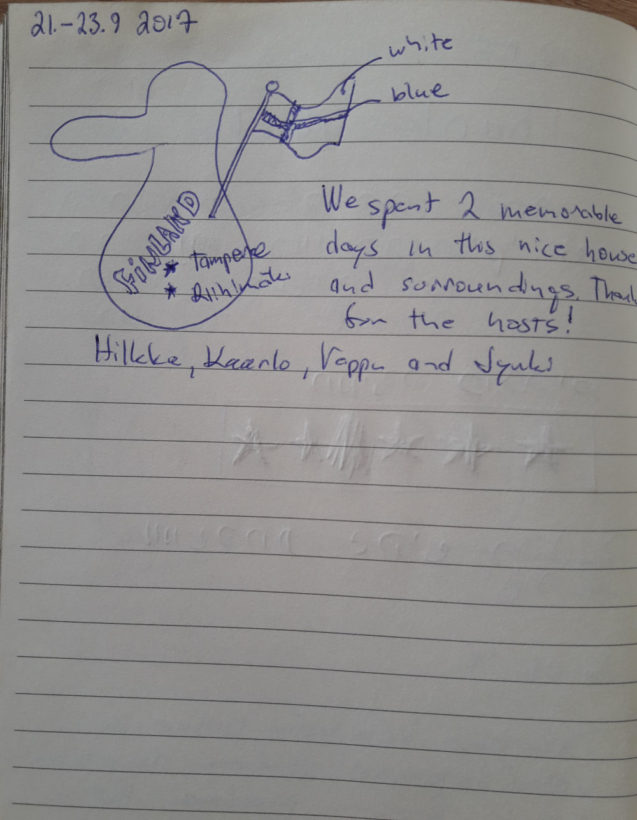 21.-23.9 2017
white
blue
FINLAND
* Tampere
* Riihimäki
We spent 2 memorable
days in this nice house
and surroundings. Thank
for the hosts!
Hilkka, Kaarlo, Vappu and